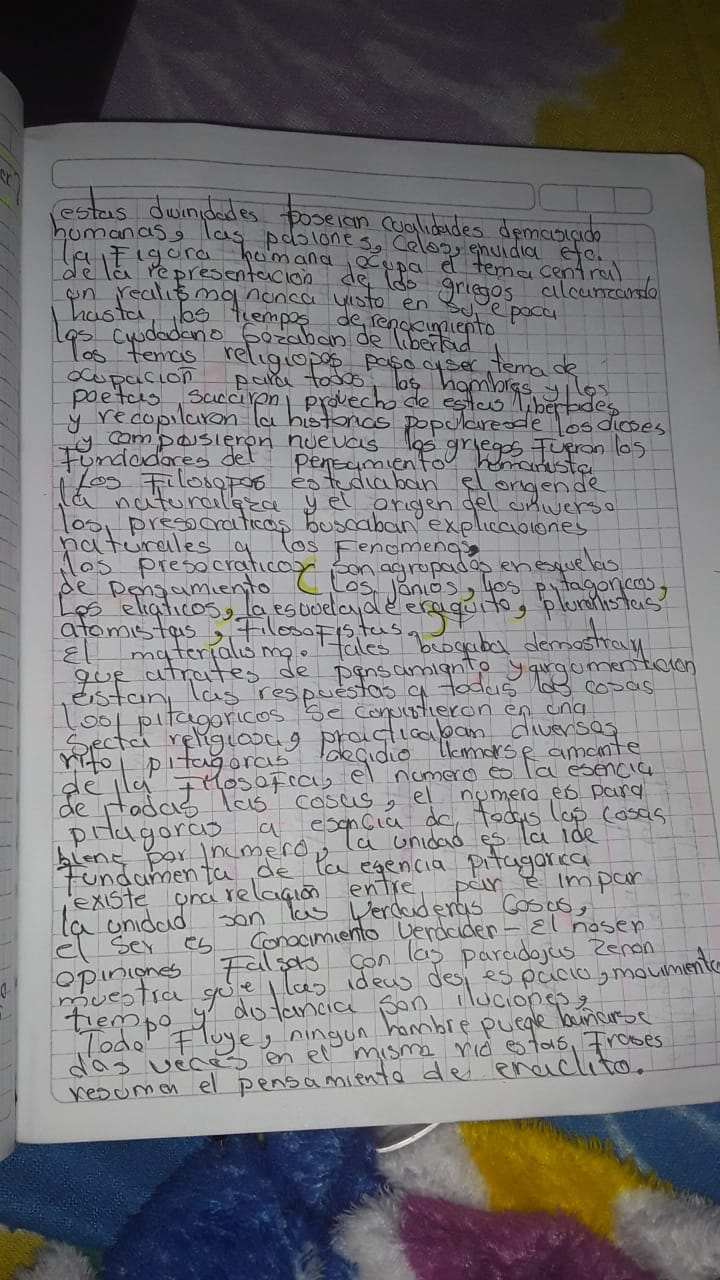 estas divinidades poseian cualidades demasiado
humanas, las pasiones, Celos, envidia etc.
la Figura humana ocupa el tema central
de la representacion de los griegos alcanzando
un realismo nunca visto en su epoca
hasta los tiempos de renacimiento
los ciudadano gozaban de libertad
los temas religiosos paso a ser tema de
ocupacion para todos los hombres y los
poetas sacaron provecho de estas libertades
y recopilaron la historias populares de los dioses
y compusieron nuevas los griegos fueron los
fundadores del pensamiento humanista
Los Filosofos estudiaban el origen de
la naturaleza y el origen del universo
los presocraticos buscaban explicaciones
naturales a los Fenomenos
los presocraticos son agrupados en esquelas
de pensamiento ( los Jonios, los pitagoricos,
Los eliaticos, la escuela de eraquito, pluralistas
atomistas, Filosofistas )
El materialismo. tales buscaba demostrar
que atrates de pensamiento y argumentacion
estan las respuestas a todas las cosas
loo pitagoricos se convirtieron en una
Secta religiosa y practicaban diversos
rito pitagoras decidio llamarse amante
de la Filosofica, el numero es la esencia
de todas las cosas, el numero es para
pitagoras a esencia de todas las cosas
biene por numero, la unidad es la ide
fundamenta de la esencia pitagorica
existe una relacion entre par e impar
la unidad son las Verdaderas Cosas,
el Ser es Conocimiento Verdader - El noser
opiniones Falsas con las paradojas Zenon
muestra que las ideas des espacio, movimiento
tiempo y distancia son iluciones,
Todo Fluye, ningun hombre puede bañarse
dos veces en el mismo rio estas Frases
resumen el pensamiento de eraclito.